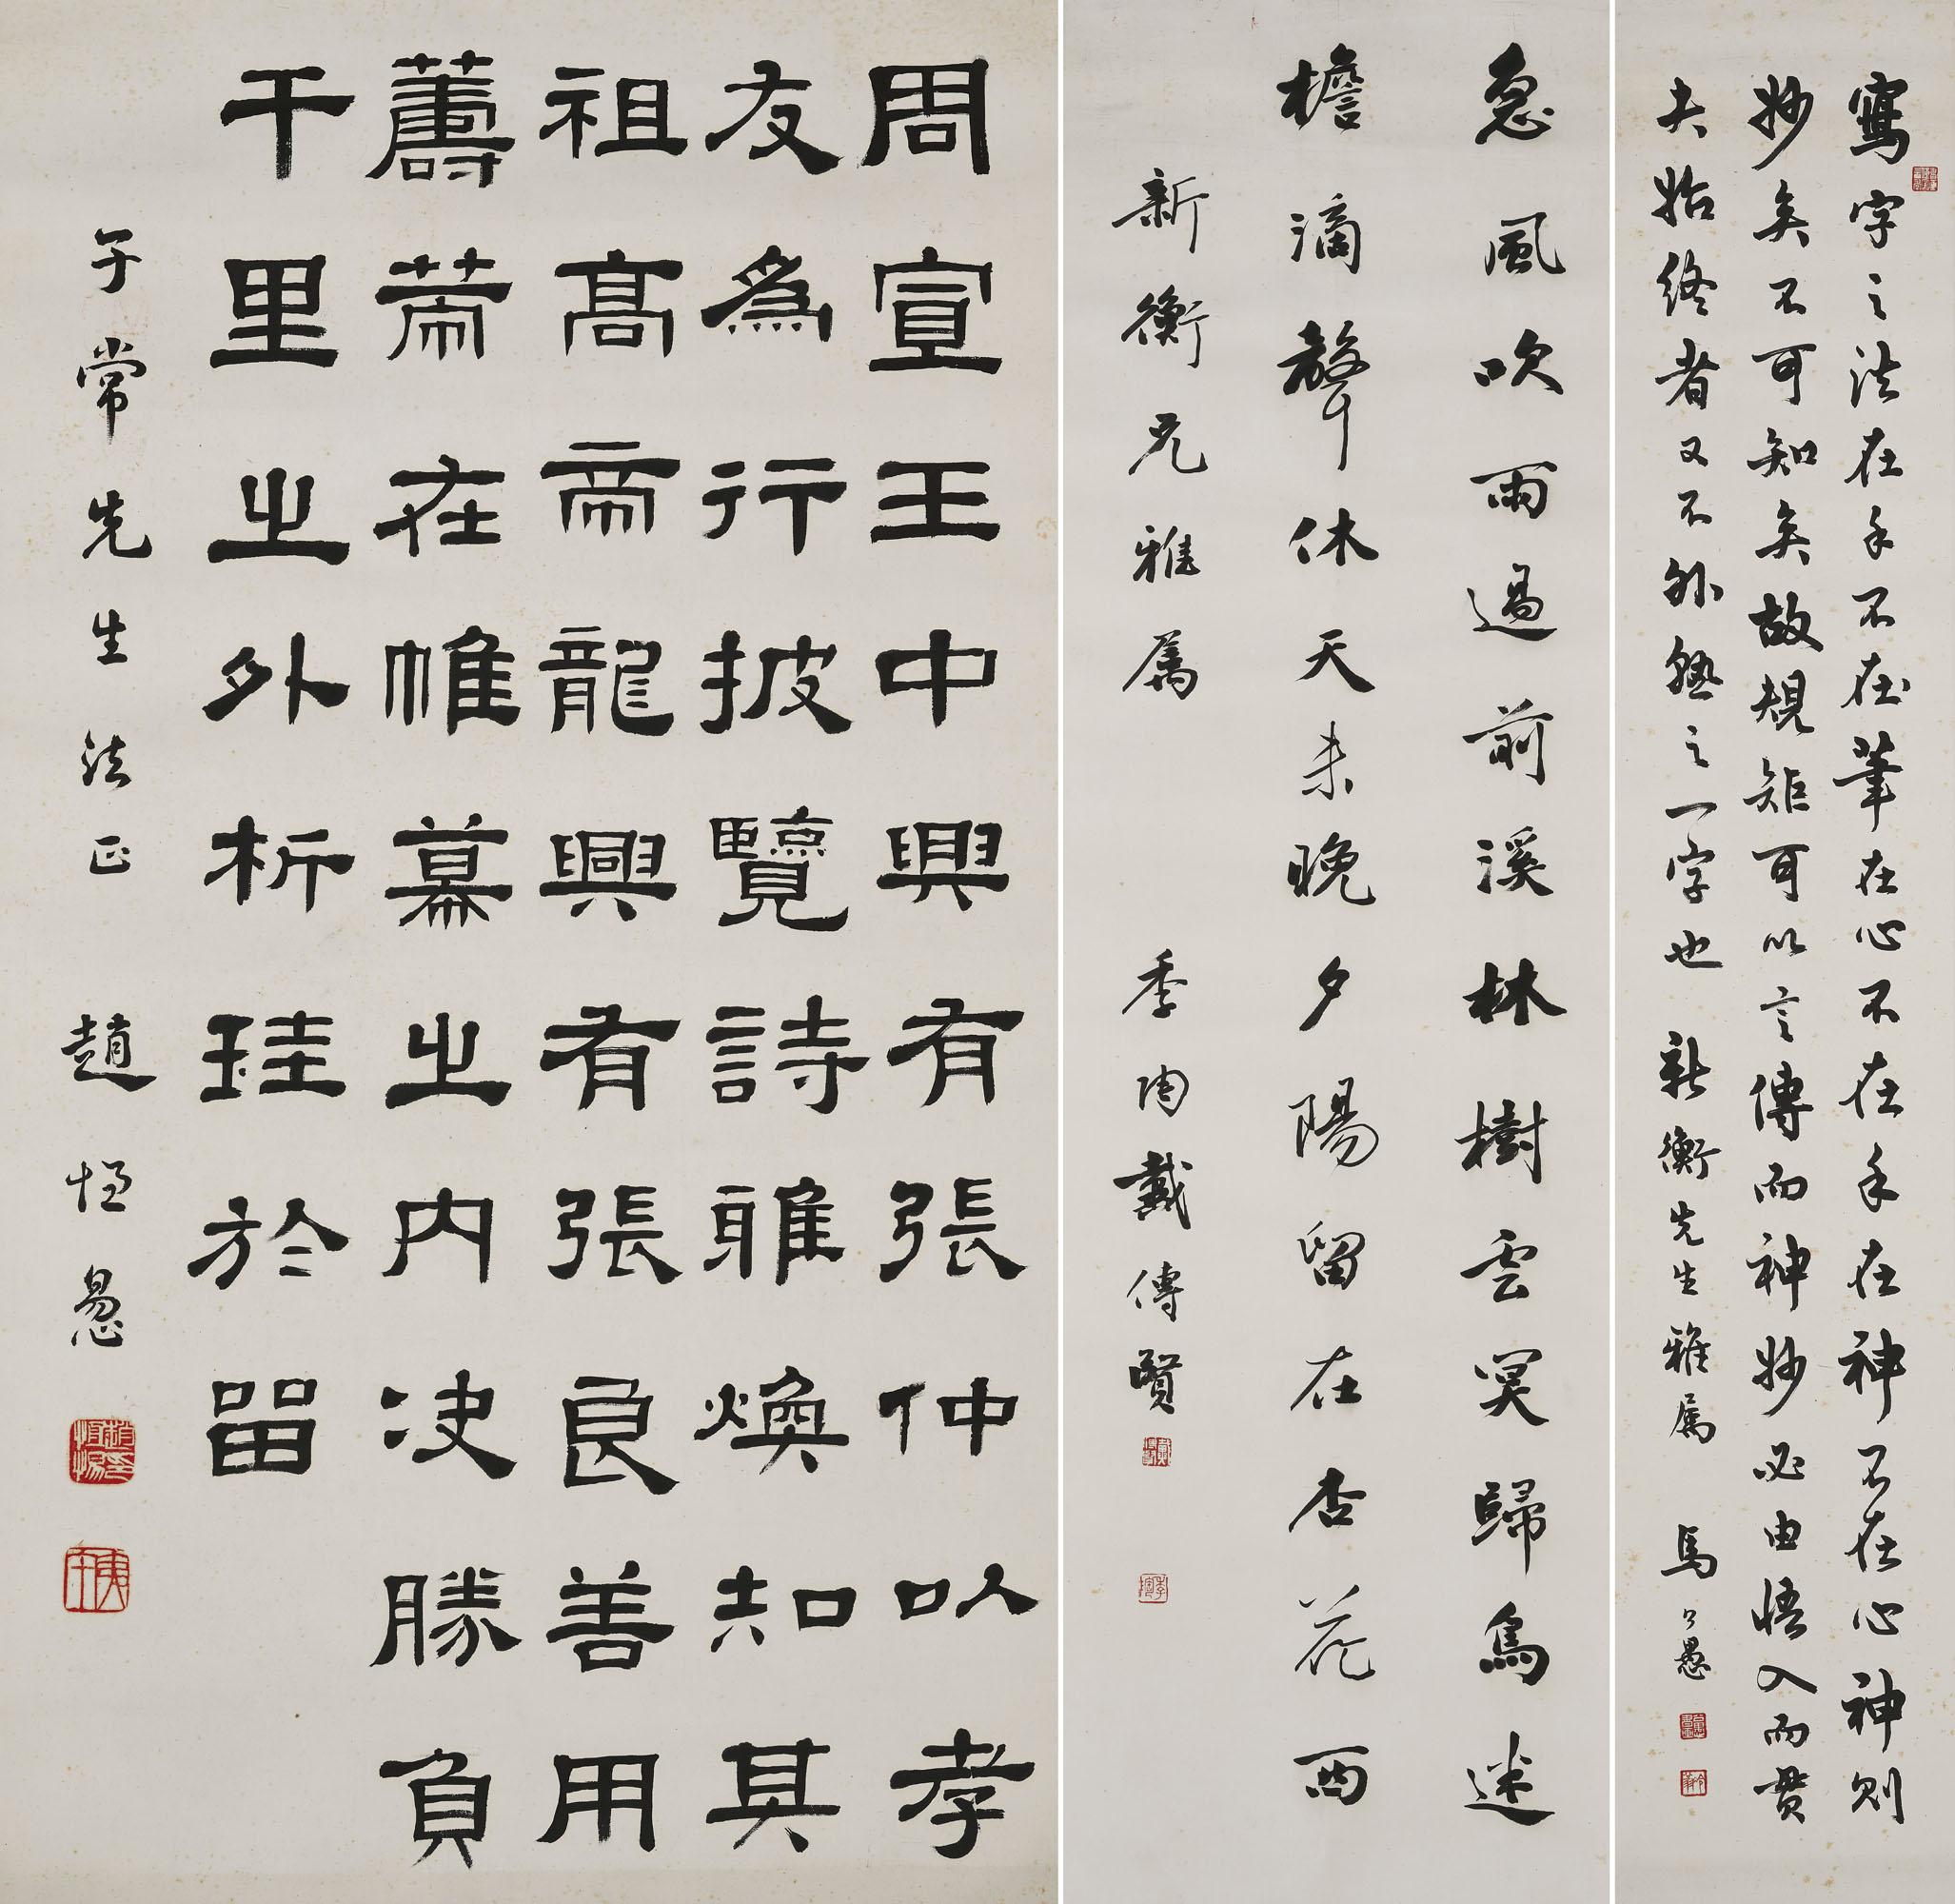 寫字之法在手不在筆在心不在手在神不在心神則
妙矣不可知矣故規矩可以言傳而神妙必由悟入而貫
夫始終者又不外熟之一字也 新衡先生雅属 馬公愚
急風吹雨過前溪林樹雲冥歸鳥迷
檐滴聲休天未晚夕陽留在杏花西
新衡兄雅属 季陶戴傳賢
周宣王中興有張仲以孝
友爲行披覽詩雅煥知其
祖高帝龍興有張良善用
籌策在帷幕之内决勝負
千里之外析珪於留
子常先生法正 趙恒惕
趙恒惕印
夷午